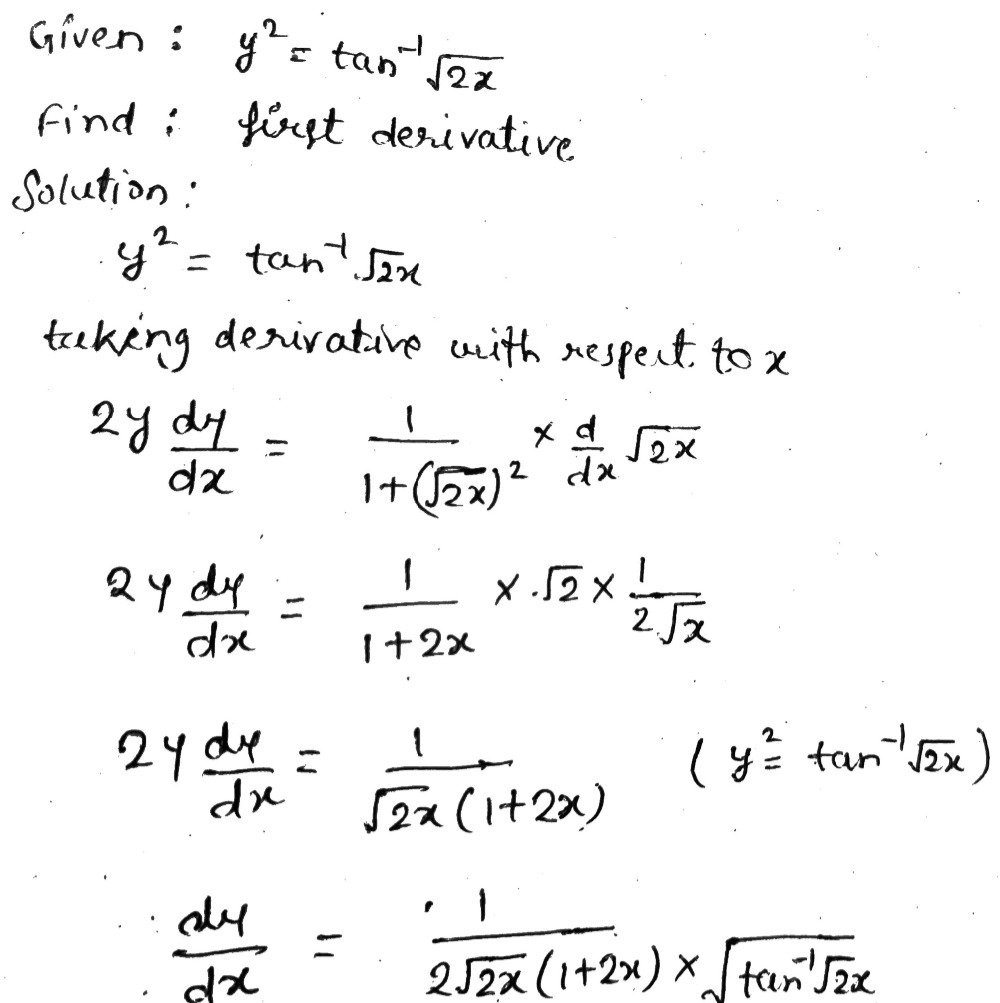 Given : y² = tan⁻¹ √2x
Find : first derivative
Solution :
y² = tan⁻¹ √2x
taking derivative with respect to x
2y dy/dx = 1/(1+(√2x)²) × d/dx √2x
2y dy/dx = 1/(1+2x) × √2 × 1/(2√x)
2y dy/dx = 1/(√2x (1+2x)) (y² = tan⁻¹ √2x)
dy/dx = 1/(2√2x (1+2x) × √(tan⁻¹ √2x))